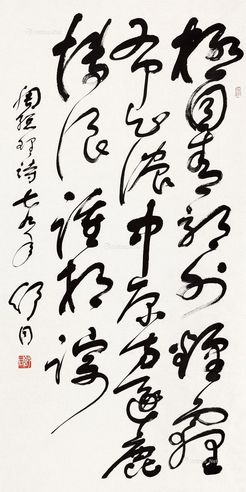 極目青郊外煙霾
布正濃中原方逐鹿
博浪踵相蹤
周總理詩七九年舒同